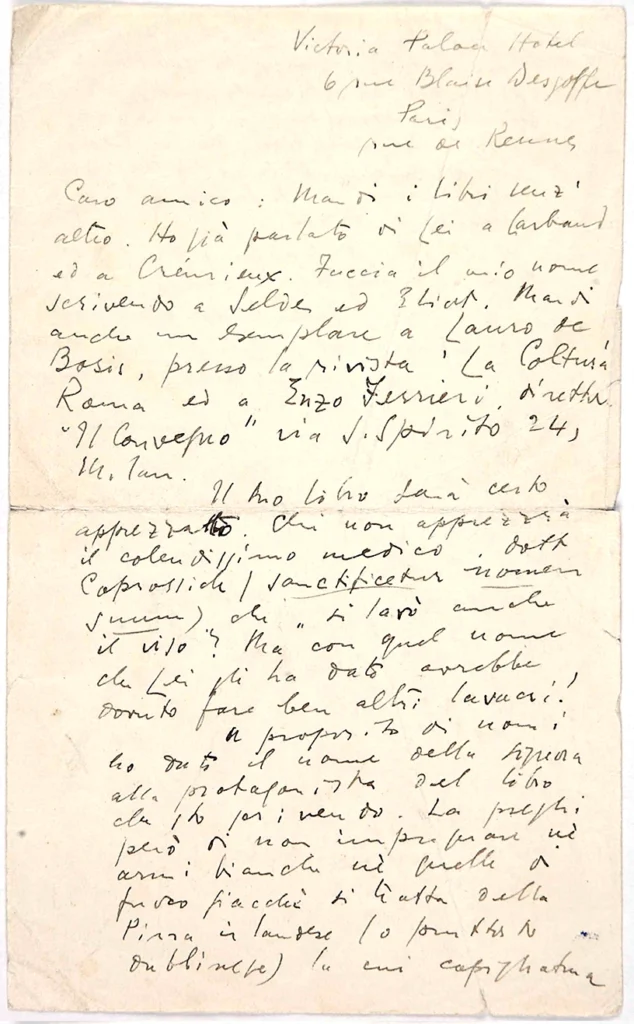 Victoria Palace Hotel
6 rue Blaise Desgoffe
Paris
rue de Rennes
Caro amico: Mandi i libri senz'
altro. Ho già parlato di Lei a Larbaud
ed a Crémieux. Faccia il mio nome
scrivendo a Seldes ed Eliot. Mandi
anche un esemplare a Lauro de
Bosis, presso la rivista "La Coltura"
Roma ed a Enzo Ferrieri, direttore
"Il Convegno" via S. Spirito 24,
Milan.
Il Suo libro sarà certo
apprezzato. Chi non apprezzerà
il colendissimo medico, dott
Coprosich (sanctificetur nomen
suum) che "si lavò anche
il viso"? Ma con quel nome
che Lei gli ha dato avrebbe
dovuto fare ben altri lavacri!
A proposito di nomi:
ho dato il nome della signora
alla protagonista del libro
che sto scrivendo. La preghi
però di non impugnare nè
armi bianche nè quelle di
fuoco giacchè si tratta della
Pirra irlandese (o piuttosto
dublinese) la cui capigliatura